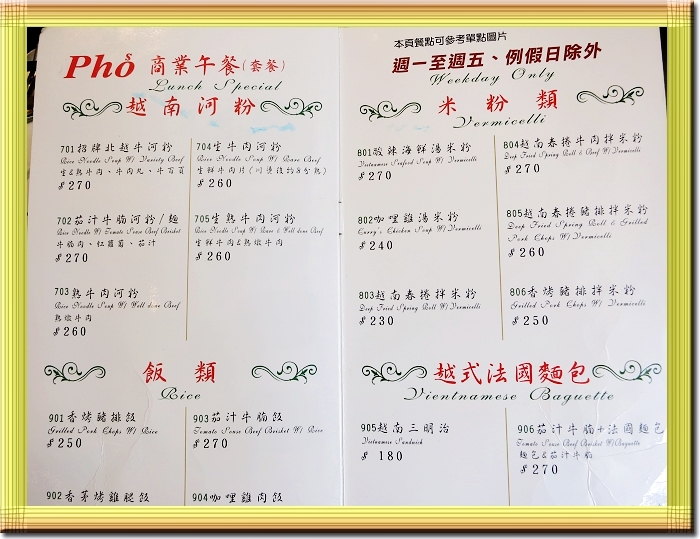 Phở 商業午餐(套餐)
Lunch Special
越南河粉
701招牌北越牛河粉
Rice Noodle Soup W/ Variety Beef
生&熟牛肉、牛肉丸、牛百頁
$270
702茄汁牛腩河粉/麵
Rice Noodle W/ Tomato Sause Beef Brisket
牛腩肉、紅蘿蔔、茄汁
$270
703熟牛肉河粉
Rice Noodle Soup W/ Well done Beef
熟燉牛肉
$260
704生牛肉河粉
Rice Noodle Soup W/ Rare Beef
生鮮牛肉片(川燙後約8分熟)
$260
705生熟牛肉河粉
Rice Noodle Soup W/ Rare & Well done Beef
生鮮牛肉&熟燉牛肉
$260
飯類
Rice
901香烤豬排飯
Grilled Pork Chops W/ Rice
$250
902香茅烤雞腿飯
903茄汁牛腩飯
Tomato Sause Beef Brisket W/ Rice
$270
904咖哩雞肉飯
本頁餐點可參考單點圖片
週一至週五、例假日除外
Weekday Only
米粉類
Vermicelli
801酸辣海鮮湯米粉
Vietnamese Seafood Soup W/ Vermicelli
$270
802咖哩雞湯米粉
Curry's Chicken Soup W/ Vermicelli
$240
803越南春捲拌米粉
Deep Fried Spring Roll W/ Vermicelli
$230
804越南春捲牛肉拌米粉
Deep Fried Spring Roll & Beef W/ Vermicelli
$270
805越南春捲豬排拌米粉
Deep Fried Spring Roll & Grilled
Pork Chops W/ Vermicelli
$260
806香烤豬排拌米粉
Grilled Pork Chops W/ Vermicelli
$250
越式法國麵包
Vientnamese Baguette
905越南三明治
Vietnamese Sandwich
$ 180
906茄汁牛腩+法國麵包
Tomato Sause Beef Brisket W/Baguette
麵包&茄汁牛腩
$270